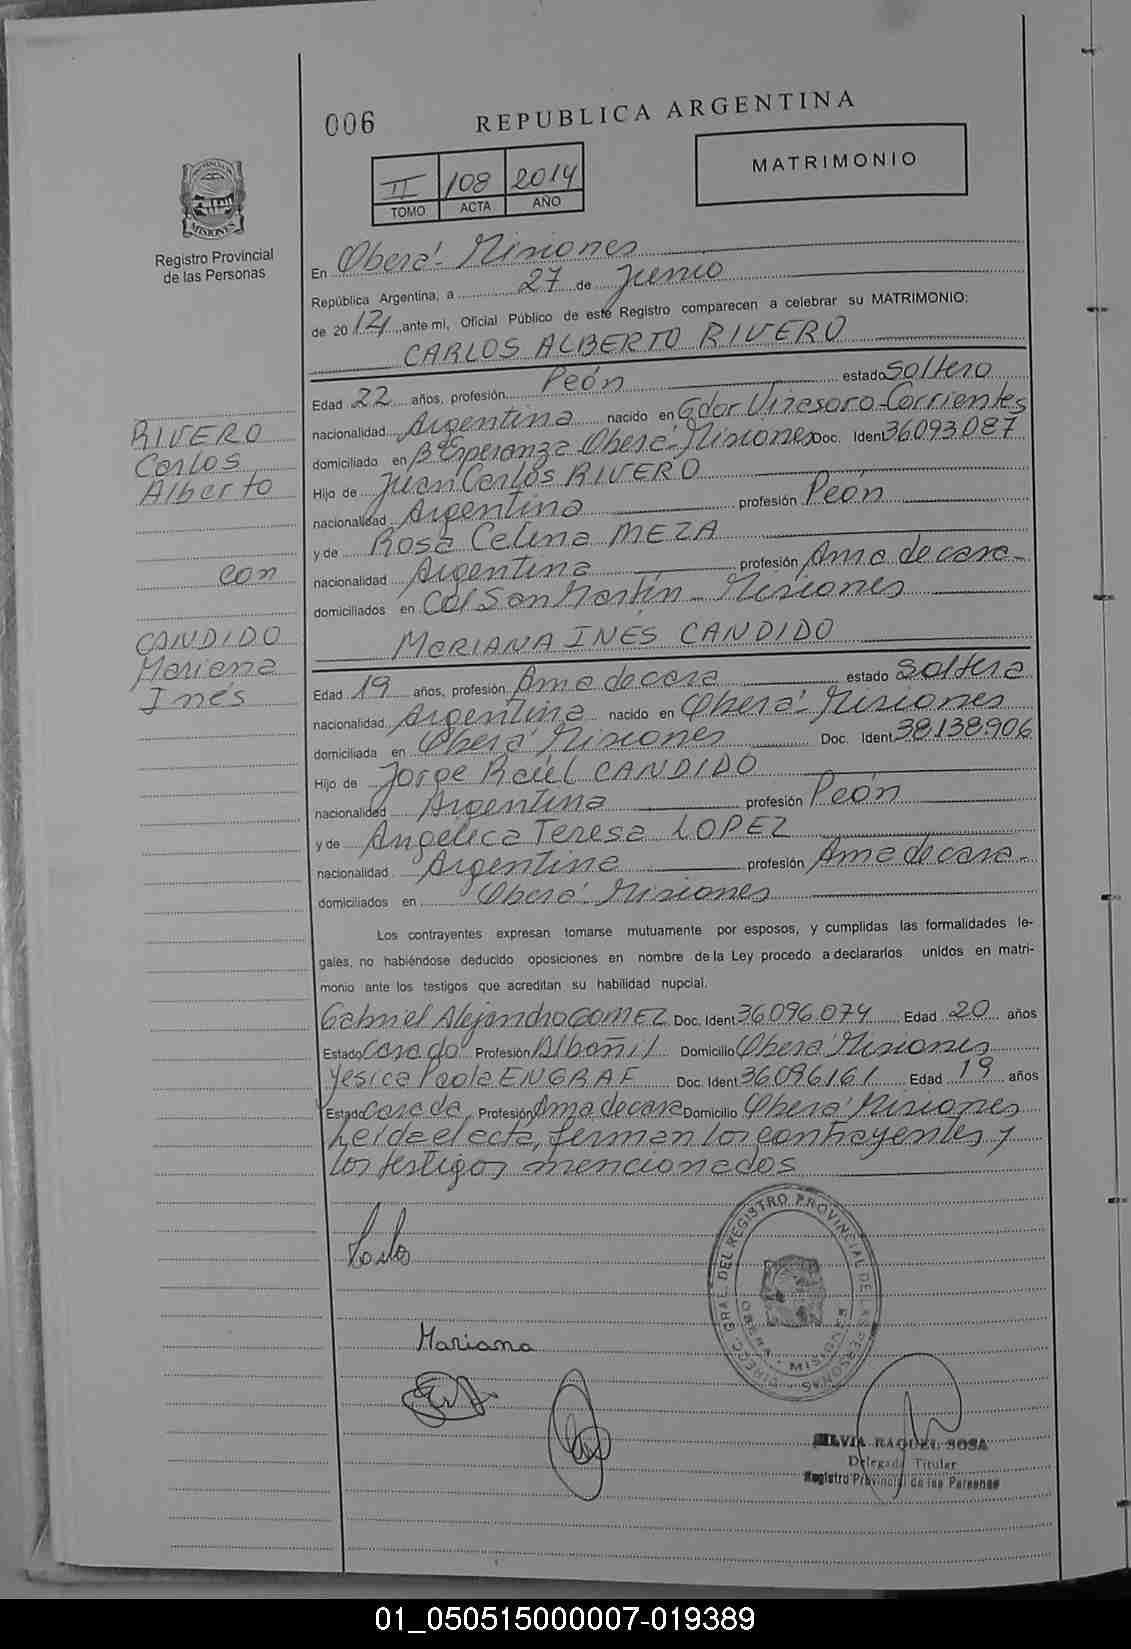 006
REPUBLICA ARGENTINA
II 108 2014
TOMO ACTA AÑO
MATRIMONIO
MISIONES
Registro Provincial
de las Personas
En Oberá - Misiones
República Argentina, a 27 de Junio
de 20 14, ante mí, Oficial Público de este Registro comparecen a celebrar su MATRIMONIO:
CARLOS ALBERTO RIVERO
Edad 22 años, profesión Peón estado soltero
nacionalidad Argentina nacido en Gdor Virasoro-Corrientes
domiciliado en Bº Esperanza Oberá-Misiones Doc. Iden 36093.087
Hijo de Juan Carlos RIVERO
nacionalidad Argentina profesión Peón
y de Rosa Celina MEZA
nacionalidad Argentina profesión Ama de casa-
domiciliados en Col San Martín - Misiones
MARIANA INÉS CANDIDO
Edad 19 años, profesión Ama de casa estado soltera
nacionalidad Argentina nacido en Oberá-Misiones
domiciliada en Oberá Misiones Doc. Ident 38138.906
Hijo de Jorge Raúl CANDIDO
nacionalidad Argentina profesión Peón
y de Angelica Teresa LOPEZ
nacionalidad Argentina profesión Ama de casa-
domiciliados en Oberá-Misiones
RIVERO
Carlos
Alberto
con
CANDIDO
Mariana
Inés
Los contrayentes expresan tomarse mutuamente por esposos, y cumplidas las formalidades le-
gales, no habiéndose deducido oposiciones en nombre de la Ley procedo a declararlos unidos en matri-
monio ante los testigos que acreditan su habilidad nupcial.
Gabriel Alejandro GOMEZ Doc. Ident 36.096.074 Edad 20 años
Estado Casado Profesión Albañil Domicilio Oberá Misiones
Yesica Paola ENGRAF Doc. Ident 36096161 Edad 19 años
Estado Casada Profesión Ama de casa Domicilio Oberá Misiones
Leída el acta, firman los contrayentes y
los testigos mencionados
Mariana
DIRECC. GRAL. DEL REGISTRO PROVINCIAL DE LAS PERSONAS
OBERA - MISIONES
SILVIA RAQUEL SOSA
Delegada Titular
Registro Provincial de las Personas
01_050515000007-019389